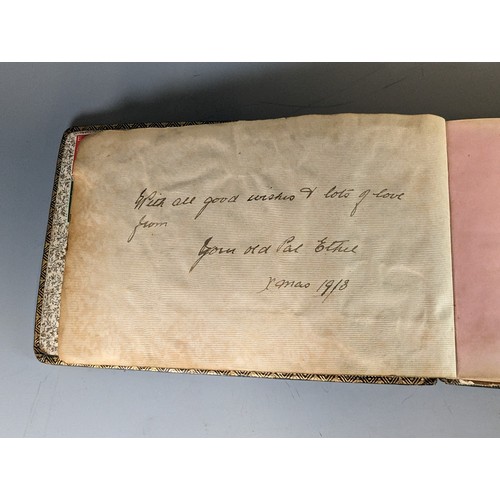 With all good wishes & lots of love
from
Your old Pal Ethel
Xmas 1918